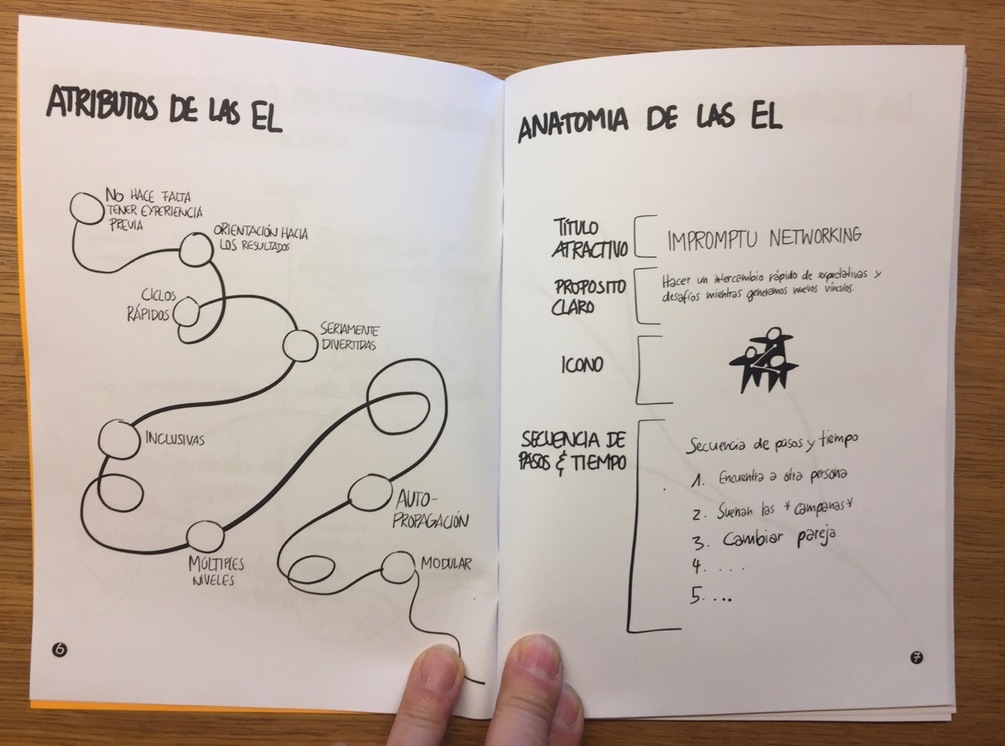 ATRIBUTOS DE LAS EL
NO HACE FALTA
TENER EXPERIENCIA
PREVIA
ORIENTACIÓN HACIA
LOS RESULTADOS
CICLOS
RÁPIDOS
SERIAMENTE
DIVERTIDAS
INCLUSIVAS
MÚLTIPLES
NIVELES
AUTO-
PROPAGACIÓN
MODULAR
6
ANATOMIA DE LAS EL
TÍTULO
ATRACTIVO
IMPROMPTU NETWORKING
PROPÓSITO
CLARO
Hacer un intercambio rápido de expectativas y
desafíos mientras generamos nuevos vínculos.
ICONO
SECUENCIA DE
PASOS & TIEMPO
Secuencia de pasos y tiempo
1. Encuentra a otra persona
2. Suenan las *campanas*
3. Cambiar pareja
4. . . . .
5. ...
7